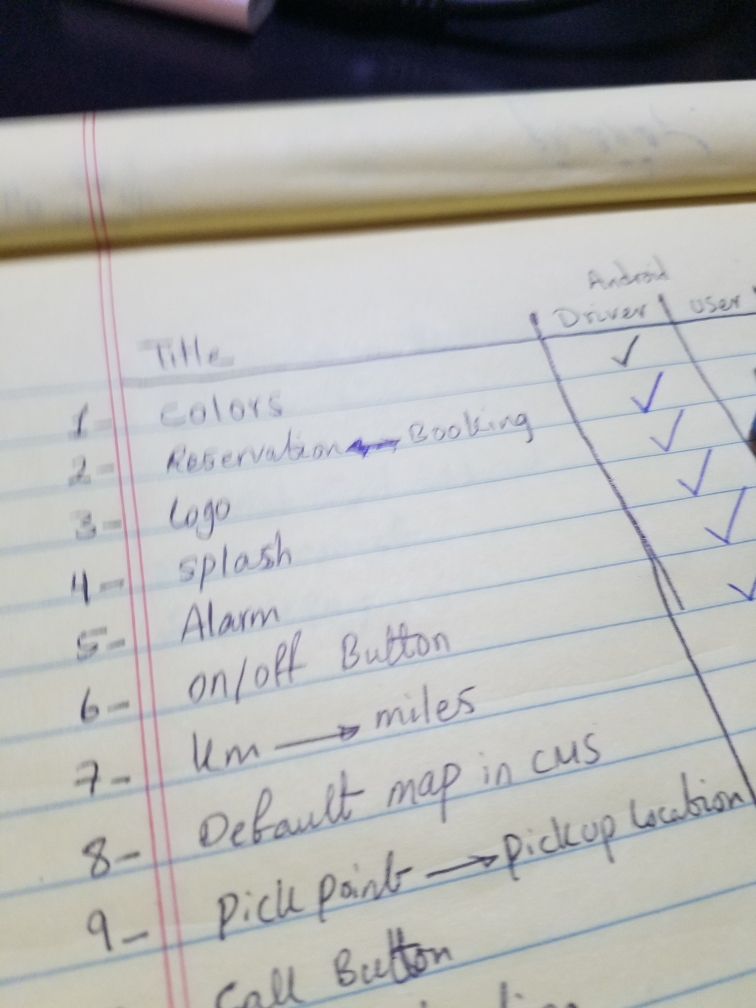 Android
Title Driver User
1- Colors
2- Reservation Booking
3- Logo
4- Splash
5- Alarm
6- on/off Button
7- Km → miles
8- Default map in cus
9- Pick point → Pickup location
Call Button